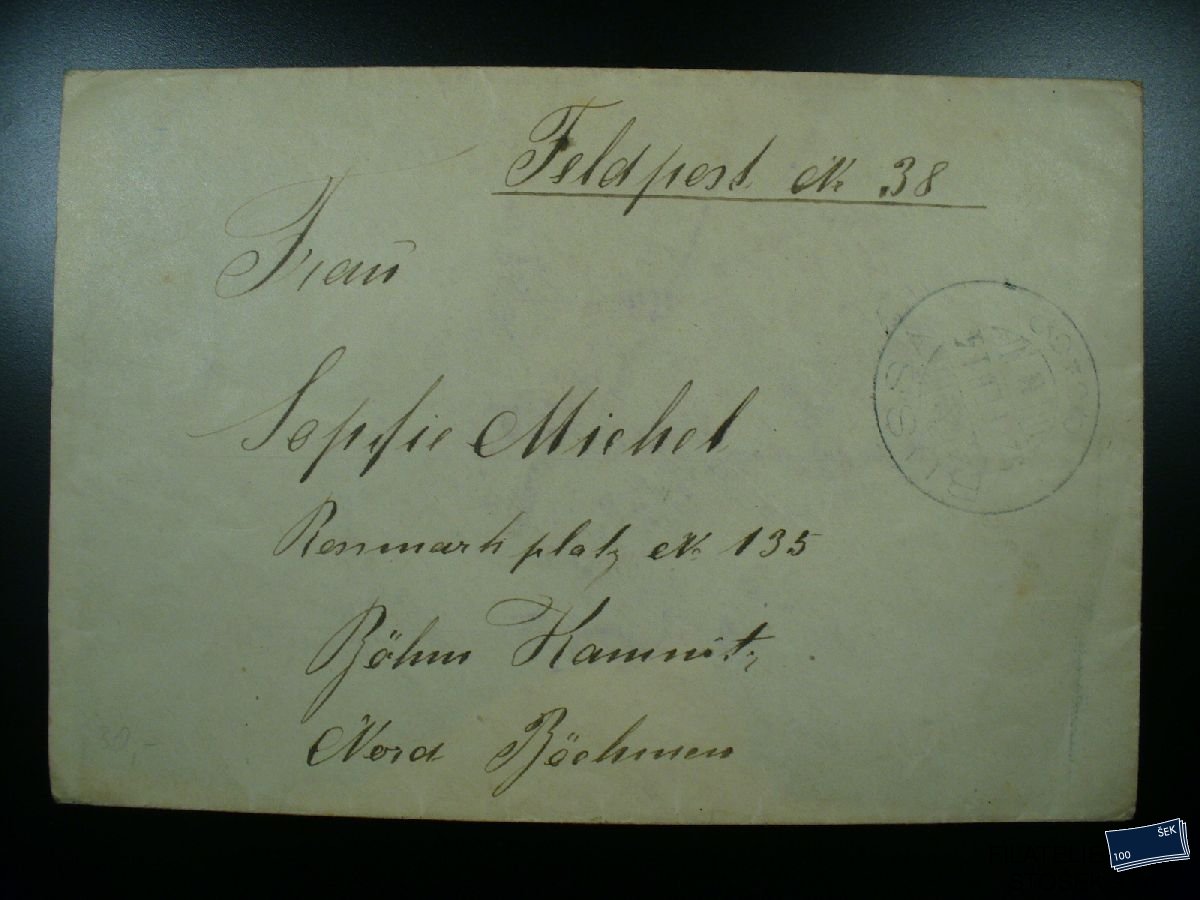 Feldpost No 38
Frau
Sophie Michel
Rossmarktplatz No 135
Böhm Kamnitz
Nord Böehmen
30,-
100 ŠEK